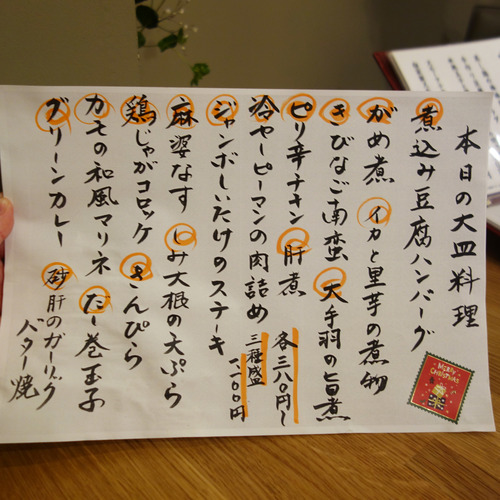 本日の大皿料理
煮込み豆腐ハンバーグ
がめ煮 イカと里芋の煮物
きびなご南蛮 大手羽の旨煮
ピリ辛チキン 肝煮 各三八〇円〜
冷やしピーマンの肉詰め 三種盛
ジャンボしいたけのステーキ 一、二〇〇円
麻婆なす しみ大根の天ぷら
鶏じゃがコロッケ きんぴら
カモの和風マリネ だし巻玉子
グリーンカレー 砂肝のガーリック
バター焼
MERRY CHRISTMAS